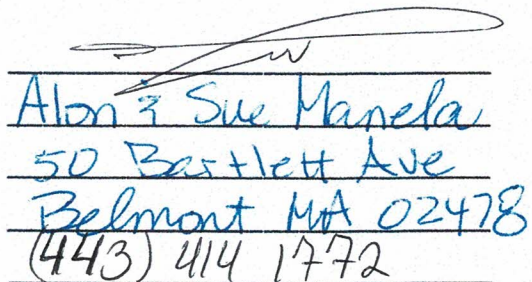 Alon & Sue Manela
50 Bartlett Ave
Belmont MA 02478
(443) 414 1772